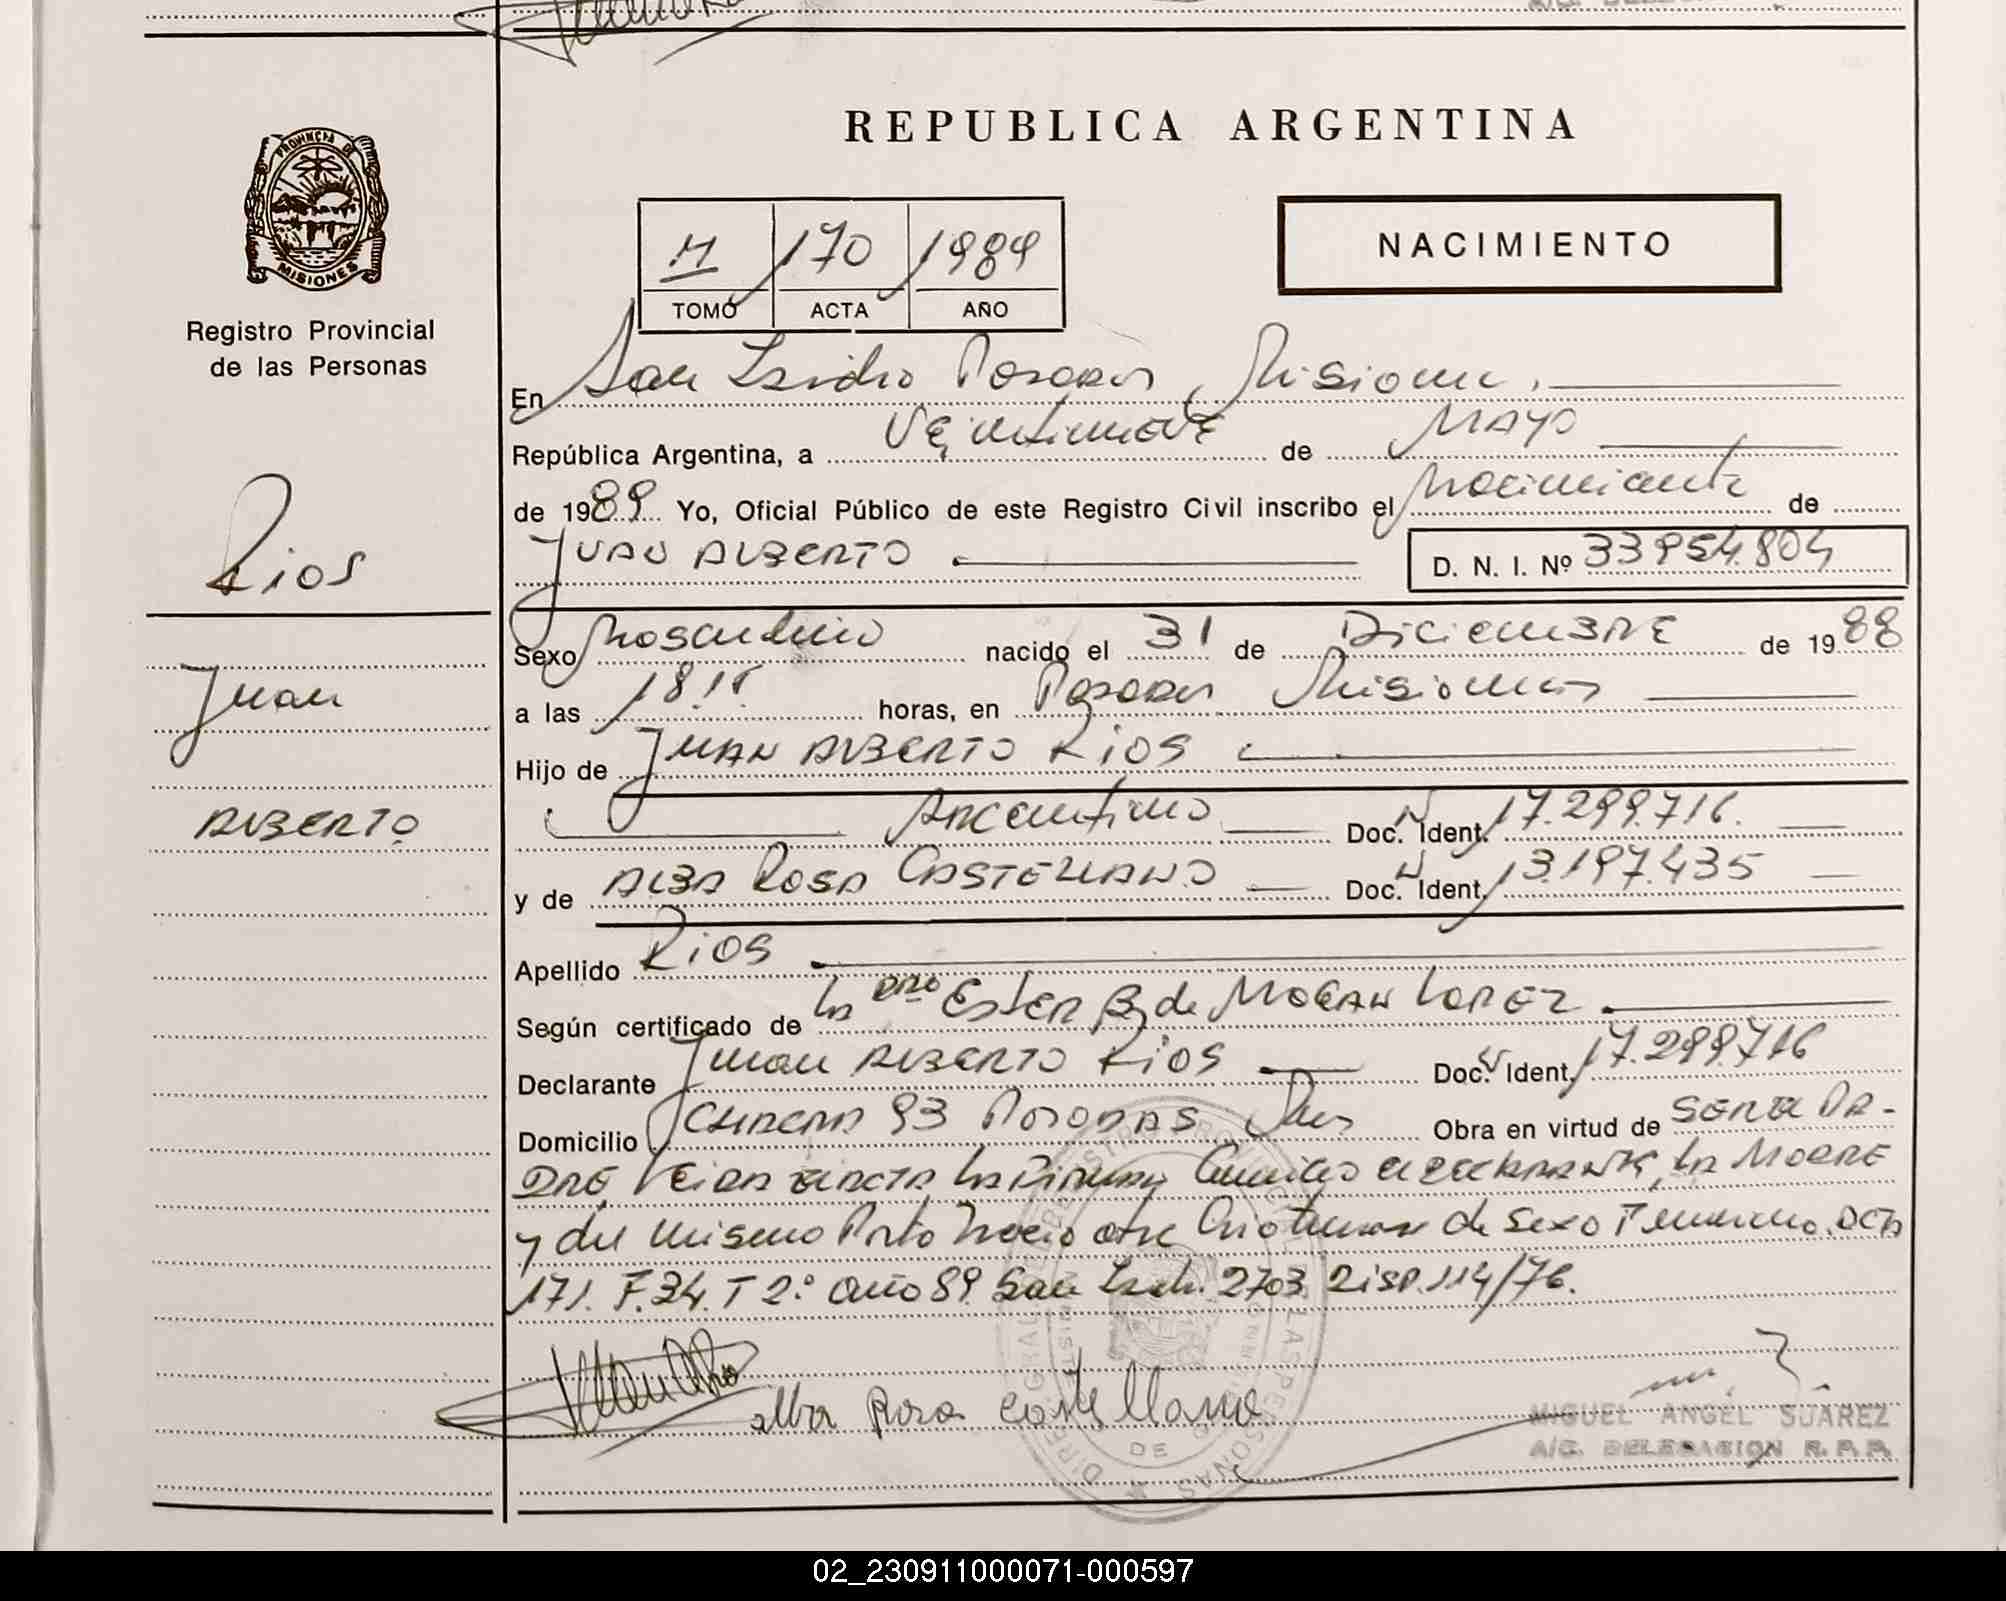 REPUBLICA ARGENTINA
PROVINCIA DE
MISIONES
Registro Provincial
de las Personas
170 1989
TOMO ACTA AÑO
NACIMIENTO
En San Isidro Posadas, Misiones,
República Argentina, a Veintinueve de Mayo
de 1989 Yo, Oficial Público de este Registro Civil inscribo el Nacimiento de
Juan Alberto D. N. I. Nº 33954.804
Rios
Sexo Masculino nacido el 31 de Diciembre de 1988
Juan
a las 18.15 horas, en Posadas Misiones
Hijo de Juan Alberto Rios
Alberto
Argentino Doc. Ident. 17.299.716.
y de Alba Rosa Castellano Doc. Ident. 13.197.435
Apellido Rios
Según certificado de la Dra Ester B de Lopez
Declarante Juan Alberto Rios Doc. Ident. 17.299.716
Domicilio 93 Posadas Mnes Obra en virtud de ser el Pa-
dre, Leida el declarante, la Madre
y del mismo Parto Nacio otra Criatura de Sexo Femenino. Acta
171. F.34. T 2º año 89. San Isidro. 2703 Disp. 114/76.
Alba Rosa Castellano
MIGUEL ANGEL SUAREZ
A/C. DELEGACION R. P. P.
02_230911000071-000597